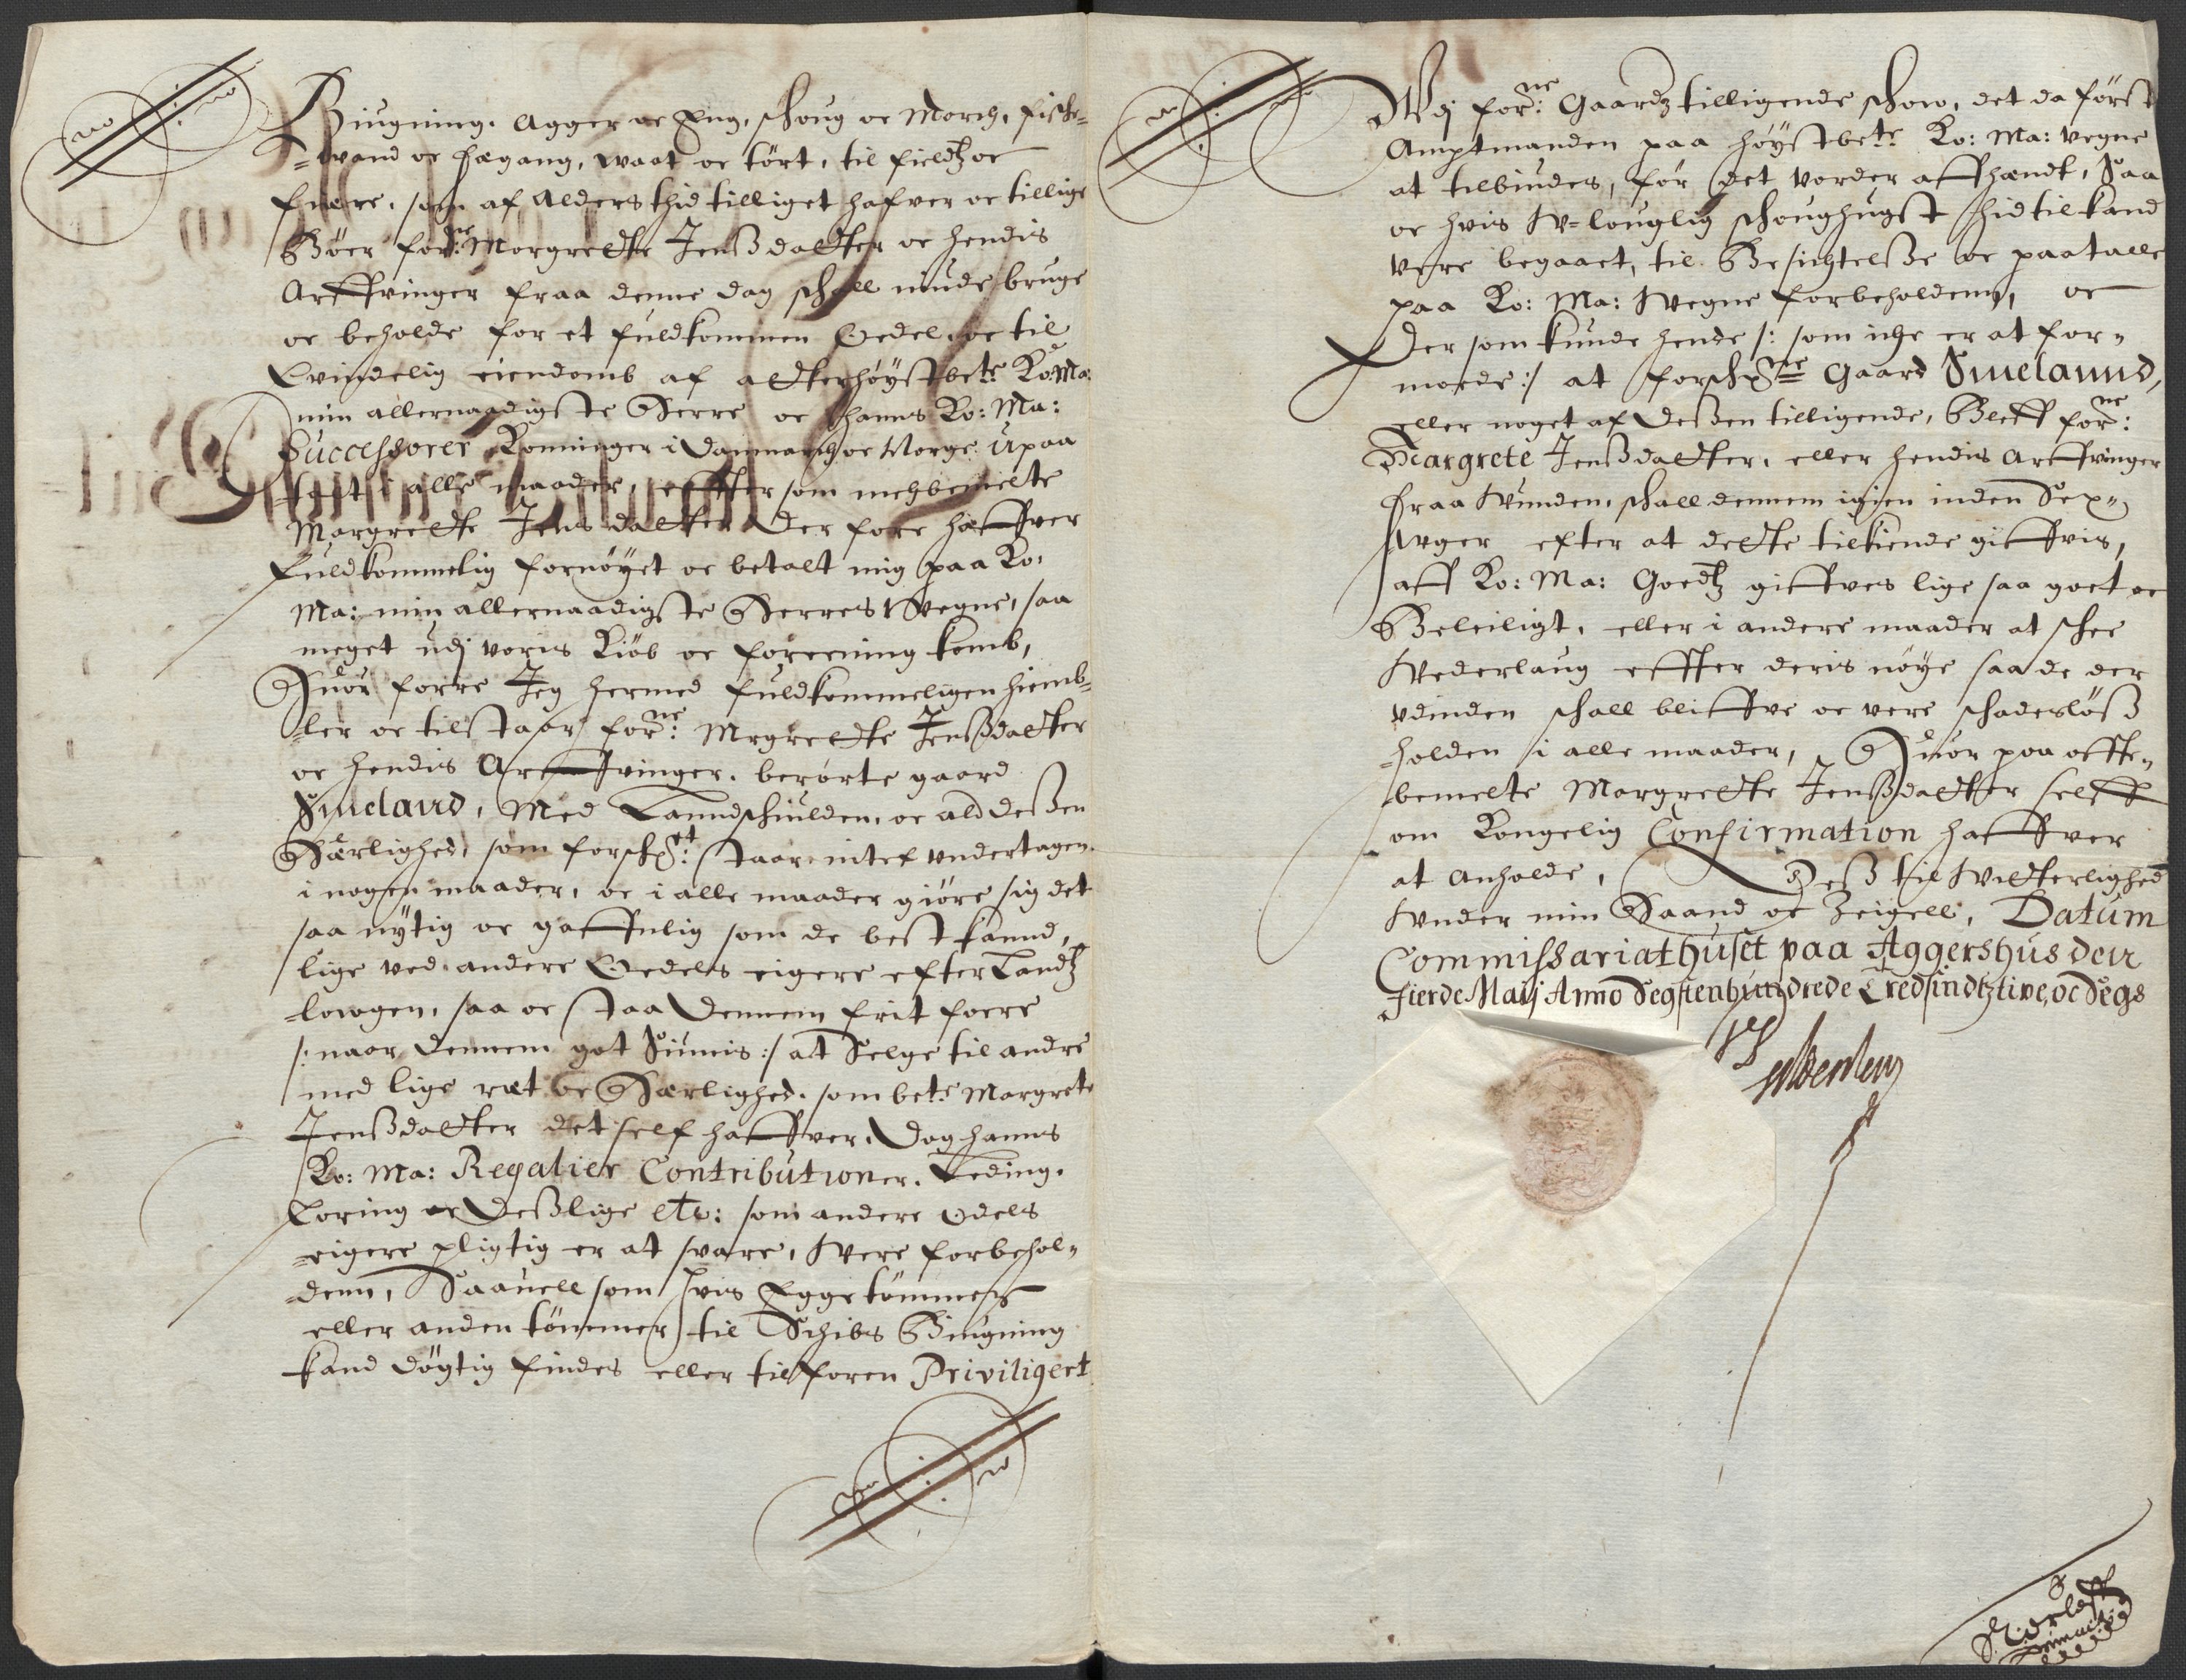 Biugning. Agger oc Eng, schoug oc Morch, fiske-
=vand oc fægang, waat oc tört, til fieldz oc
fiære, som af Alders thid tilliget hafver oc tillige
Böer, for.ne Morgrethe Jenßdatter oc hendis
Arffvinger fraa denne dag schall niude bruge
oc beholde for et fuldkommen Oedel, oc til
Evindelig eiendomb af atterhöystbe.te Ko: Ma:
min allernaadigste Herre oc hanns Ko: Ma:
Successorer Konninger i Danmarch oc Norge Upaa
i alle maader, effter som mehbemelte
Margrethe Jens datter der fore haffver
fuldkommelig fornöyet oc betalt mig paa Ko:
Ma: min allernaadigste Herres Wegne, saa
meget udj voris Kiöb oc foreening komb,
Huor forre Jeg hermed fuldkommeligen hiemb-
=ler oc tilstaar for.ne Mrgrethe Jenßdatter
oc hendis Arffvinger. berörte gaard
Smeland, Med Lanndschiulden, oc ald deßen
Herlighed, som forsch.t staar, intet undertagen
i nogen maader, oc i alle maader giöre sig det
saa nyttig oc gaffnlig som de best kannd,
lige ved andere Oedels eigere efter Landz
lowgen, saa oc staa dennem frit foere
/: naar dennem got Siunis :/ at Selge til andre
med lige ræt oc Herlighed, som be.te Margrete
Jenßdatter det self haffver. Dog hanns
Ko: Ma: Regalier Contributioner. Leding.
Foring oc deßlige etc: som andere Odels
=eigere pligtig er at svare, Were forbehol-
=denn, Saauell som hvis Egge tömmer
eller anden tömmer til Schibs Biugning
kand dögtig findes eller tilforen Priviligert
Udj for.ne Gaardz tilligende schow, det da först
Amptmanden paa höystbe.te Ko: Ma: vegne
at tilbiudes, för det vorder affhændt, Saa
oc hvis W=louglig schoughugst hid til kand
vere begaaet, til Besichtelße oc paatalle
paa Ko: Ma: Wegne forbeholdenn, oc
Der som kunde hende /: som iche er at for-
morde :/ at forsch.ne Gaard Smelannd,
eller noget af deßen tilligende, Bleff for.ne
Margrete Jenßdatter, eller hendis Arffvinger
fraa Wunden, schall dennem igien inden Sex
Uger efter at dette tilkiende giffvis,
aff Ko: Ma: Goedtz giffves lige saa goet oc
Beleiligt, eller i andere maader at schee
Wederlaug effter deris nöye saa de der
udinden schall bliffve oc vere schadeslöß
=holden i alle maader, Huor paa offte-
bemelte Margrethe Jenßdatter selff
om Kongelig Confirmation haffver
at anholde, Deß til Witterlighed
Wnder min Haand oc Zeigell, Datum
Commissariathuset paa Aggershus den
Fierde Maij Anno Segstenhundrede Tredsindtztive, oc Segs